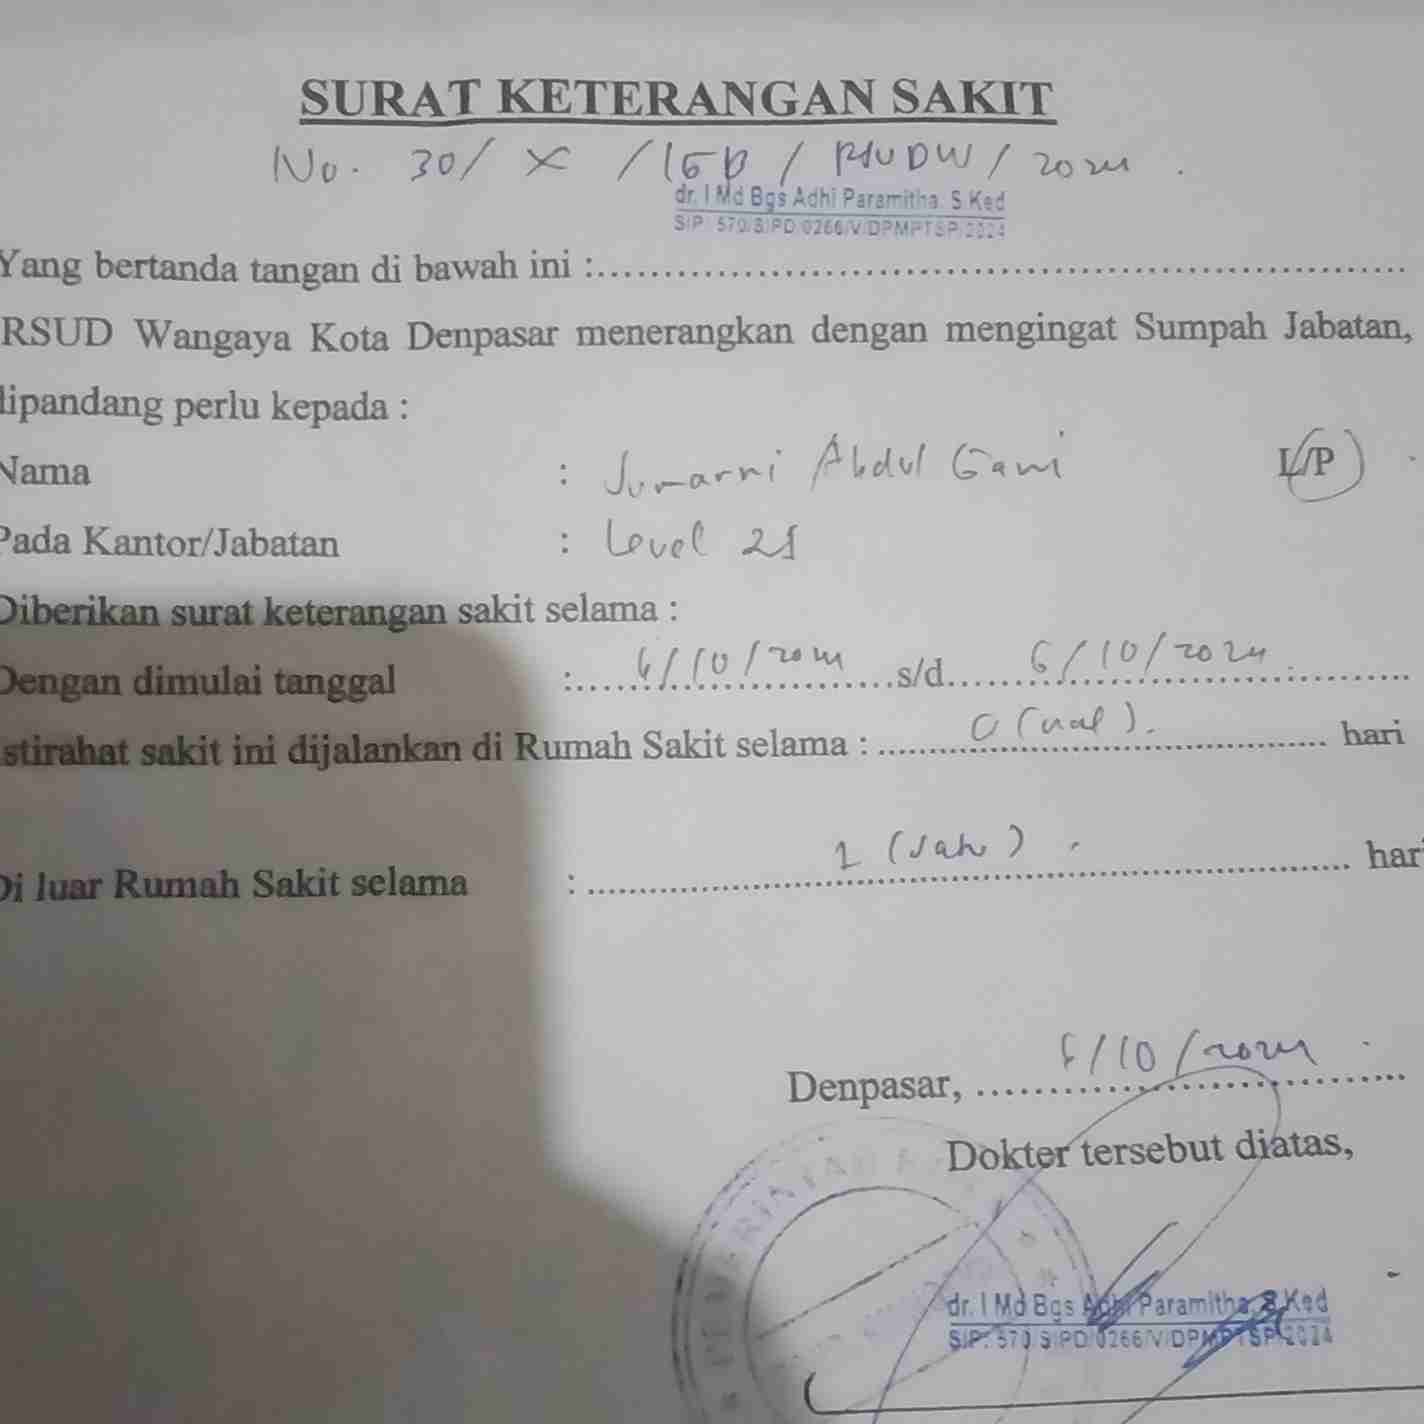 SURAT KETERANGAN SAKIT
No. 30/ X / IGD / RSUDW / 2024.
dr. I Md Bgs Adhi Paramitha. S.Ked
SIP: 570/SIPD/0266/V/DPMPTSP/2024
Yang bertanda tangan di bawah ini :
RSUD Wangaya Kota Denpasar menerangkan dengan mengingat Sumpah Jabatan,
dipandang perlu kepada :
Nama : Jumarni Abdul Gani L/P
Pada Kantor/Jabatan : Level 21
Diberikan surat keterangan sakit selama :
Dengan dimulai tanggal : 6/10/2024 s/d 6/10/2024
Istirahat sakit ini dijalankan di Rumah Sakit selama : 0 (nol). hari
Di luar Rumah Sakit selama : 1 (satu). hari
Denpasar, 6/10/2024
Dokter tersebut diatas,
dr. I Md Bgs Adhi Paramitha. S.Ked
SIP: 570/SIPD/0266/V/DPMPTSP/2024